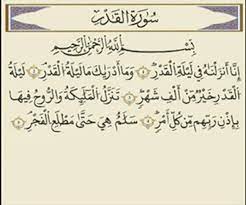 سُورَةُ الْقَدْرِ
بِسْمِ اللَّهِ الرَّحْمَٰنِ الرَّحِيمِ
إِنَّا أَنزَلْنَاهُ فِي لَيْلَةِ الْقَدْرِ ١ وَمَا أَدْرَاكَ مَا لَيْلَةُ الْقَدْرِ ٢ لَيْلَةُ
الْقَدْرِ خَيْرٌ مِّنْ أَلْفِ شَهْرٍ ٣ تَنَزَّلُ الْمَلَائِكَةُ وَالرُّوحُ فِيهَا
بِإِذْنِ رَبِّهِم مِّن كُلِّ أَمْرٍ ٤ سَلَامٌ هِيَ حَتَّىٰ مَطْلَعِ الْفَجْرِ ٥